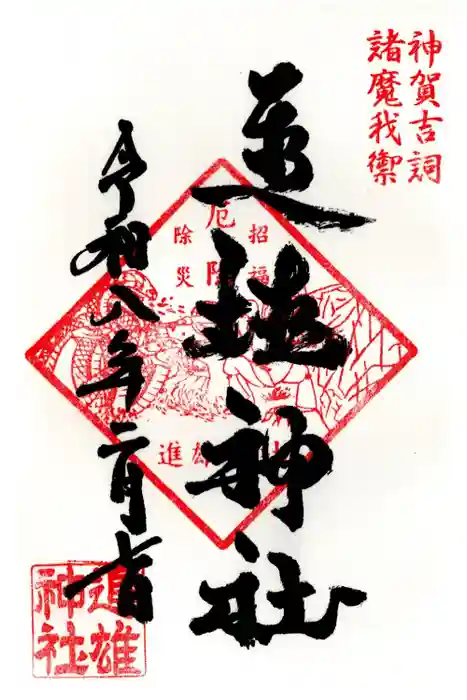 神賀吉詞
諸魔我禦
進雄神社
招福
厄除
除災
進雄
令和八年二月吉日
進雄
神社